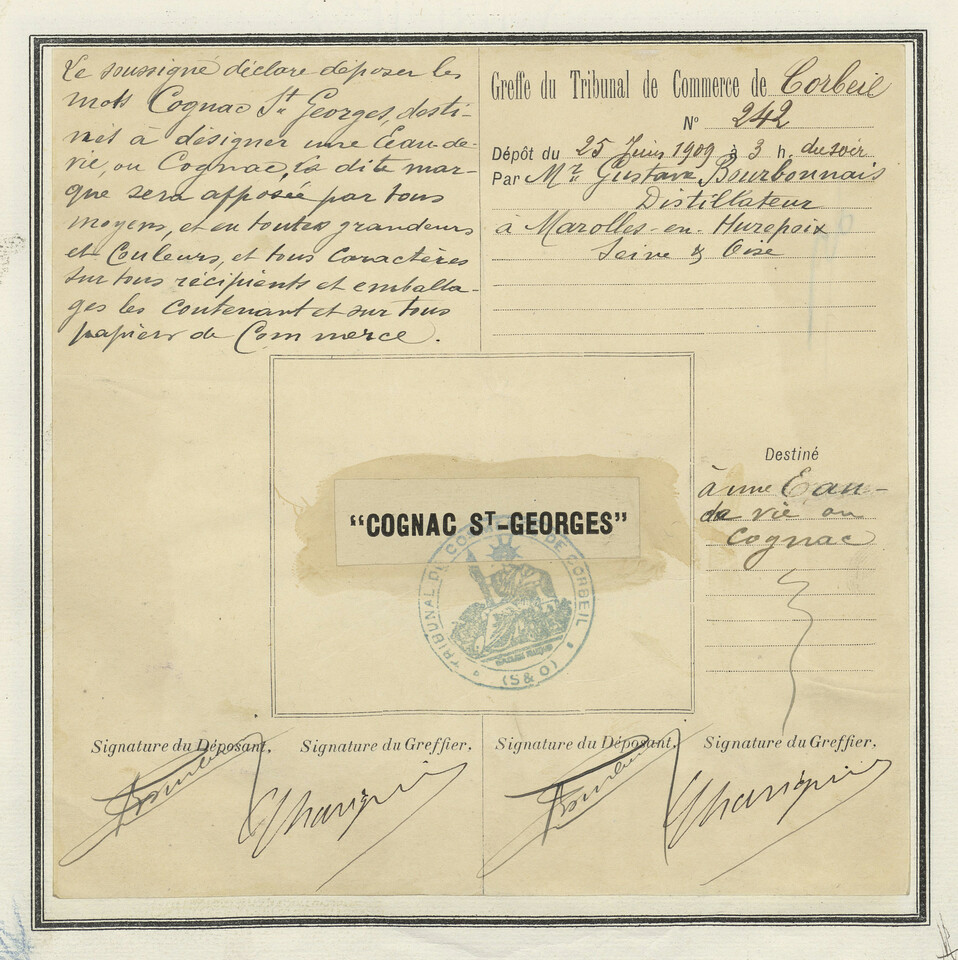 Le soussigné déclare déposer les
mots Cognac St Georges, desti-
nés à désigner une Eau-de-
vie, ou Cognac, la dite mar-
que sera apposée par tous
moyens, et en toutes grandeurs
et Couleurs, et tous caractères
sur tous récipients et emballa-
ges les contenant et sur tous
papiers de Commerce.
Greffe du Tribunal de Commerce de Corbeil
N° 242
Dépôt du 25 Juin 1909 à 3 h. du soir
Par Mr Gustave Bourbonnais
Distillateur
à Marolles-en-Hurepoix
Seine & Oise
"COGNAC ST-GEORGES"
TRIBUNAL DE COMMERCE DE CORBEIL
(S&O)
Destiné
à une Eau-
de vie ou
Cognac
Signature du Déposant, Signature du Greffier, Signature du Déposant, Signature du Greffier,